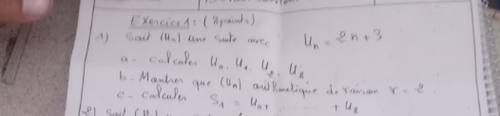 Exercice 1: (8 points)
1) Soit (Un) une suite avec Un = 2n+3
a - calculer U0, U1, U2, U8
b - Montrer que (Un) arithmetique de raison r = 2
c - calculer S1 = U0+ . . . . . + U8
2) Soit